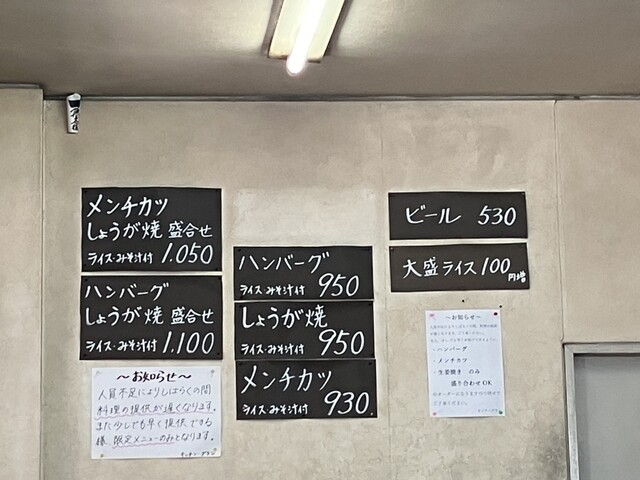 メンチカツ
しょうが焼 盛合せ
ライス・みそ汁付 1.050
ハンバーグ
しょうが焼 盛合せ
ライス・みそ汁付 1.100
～お知らせ～
人員不足によりしばらくの間
料理の提供が遅くなります。
また少しでも早く提供できる
様、限定メニューのみとなります。
ハンバーグ
ライス・みそ汁付 950
しょうが焼
ライス・みそ汁付 950
メンチカツ
ライス・みそ汁付 930
ビール 530
大盛ライス100
円増
～お知らせ～
・ハンバーグ
・メンチカツ
・生姜焼き のみ
盛り合わせOK